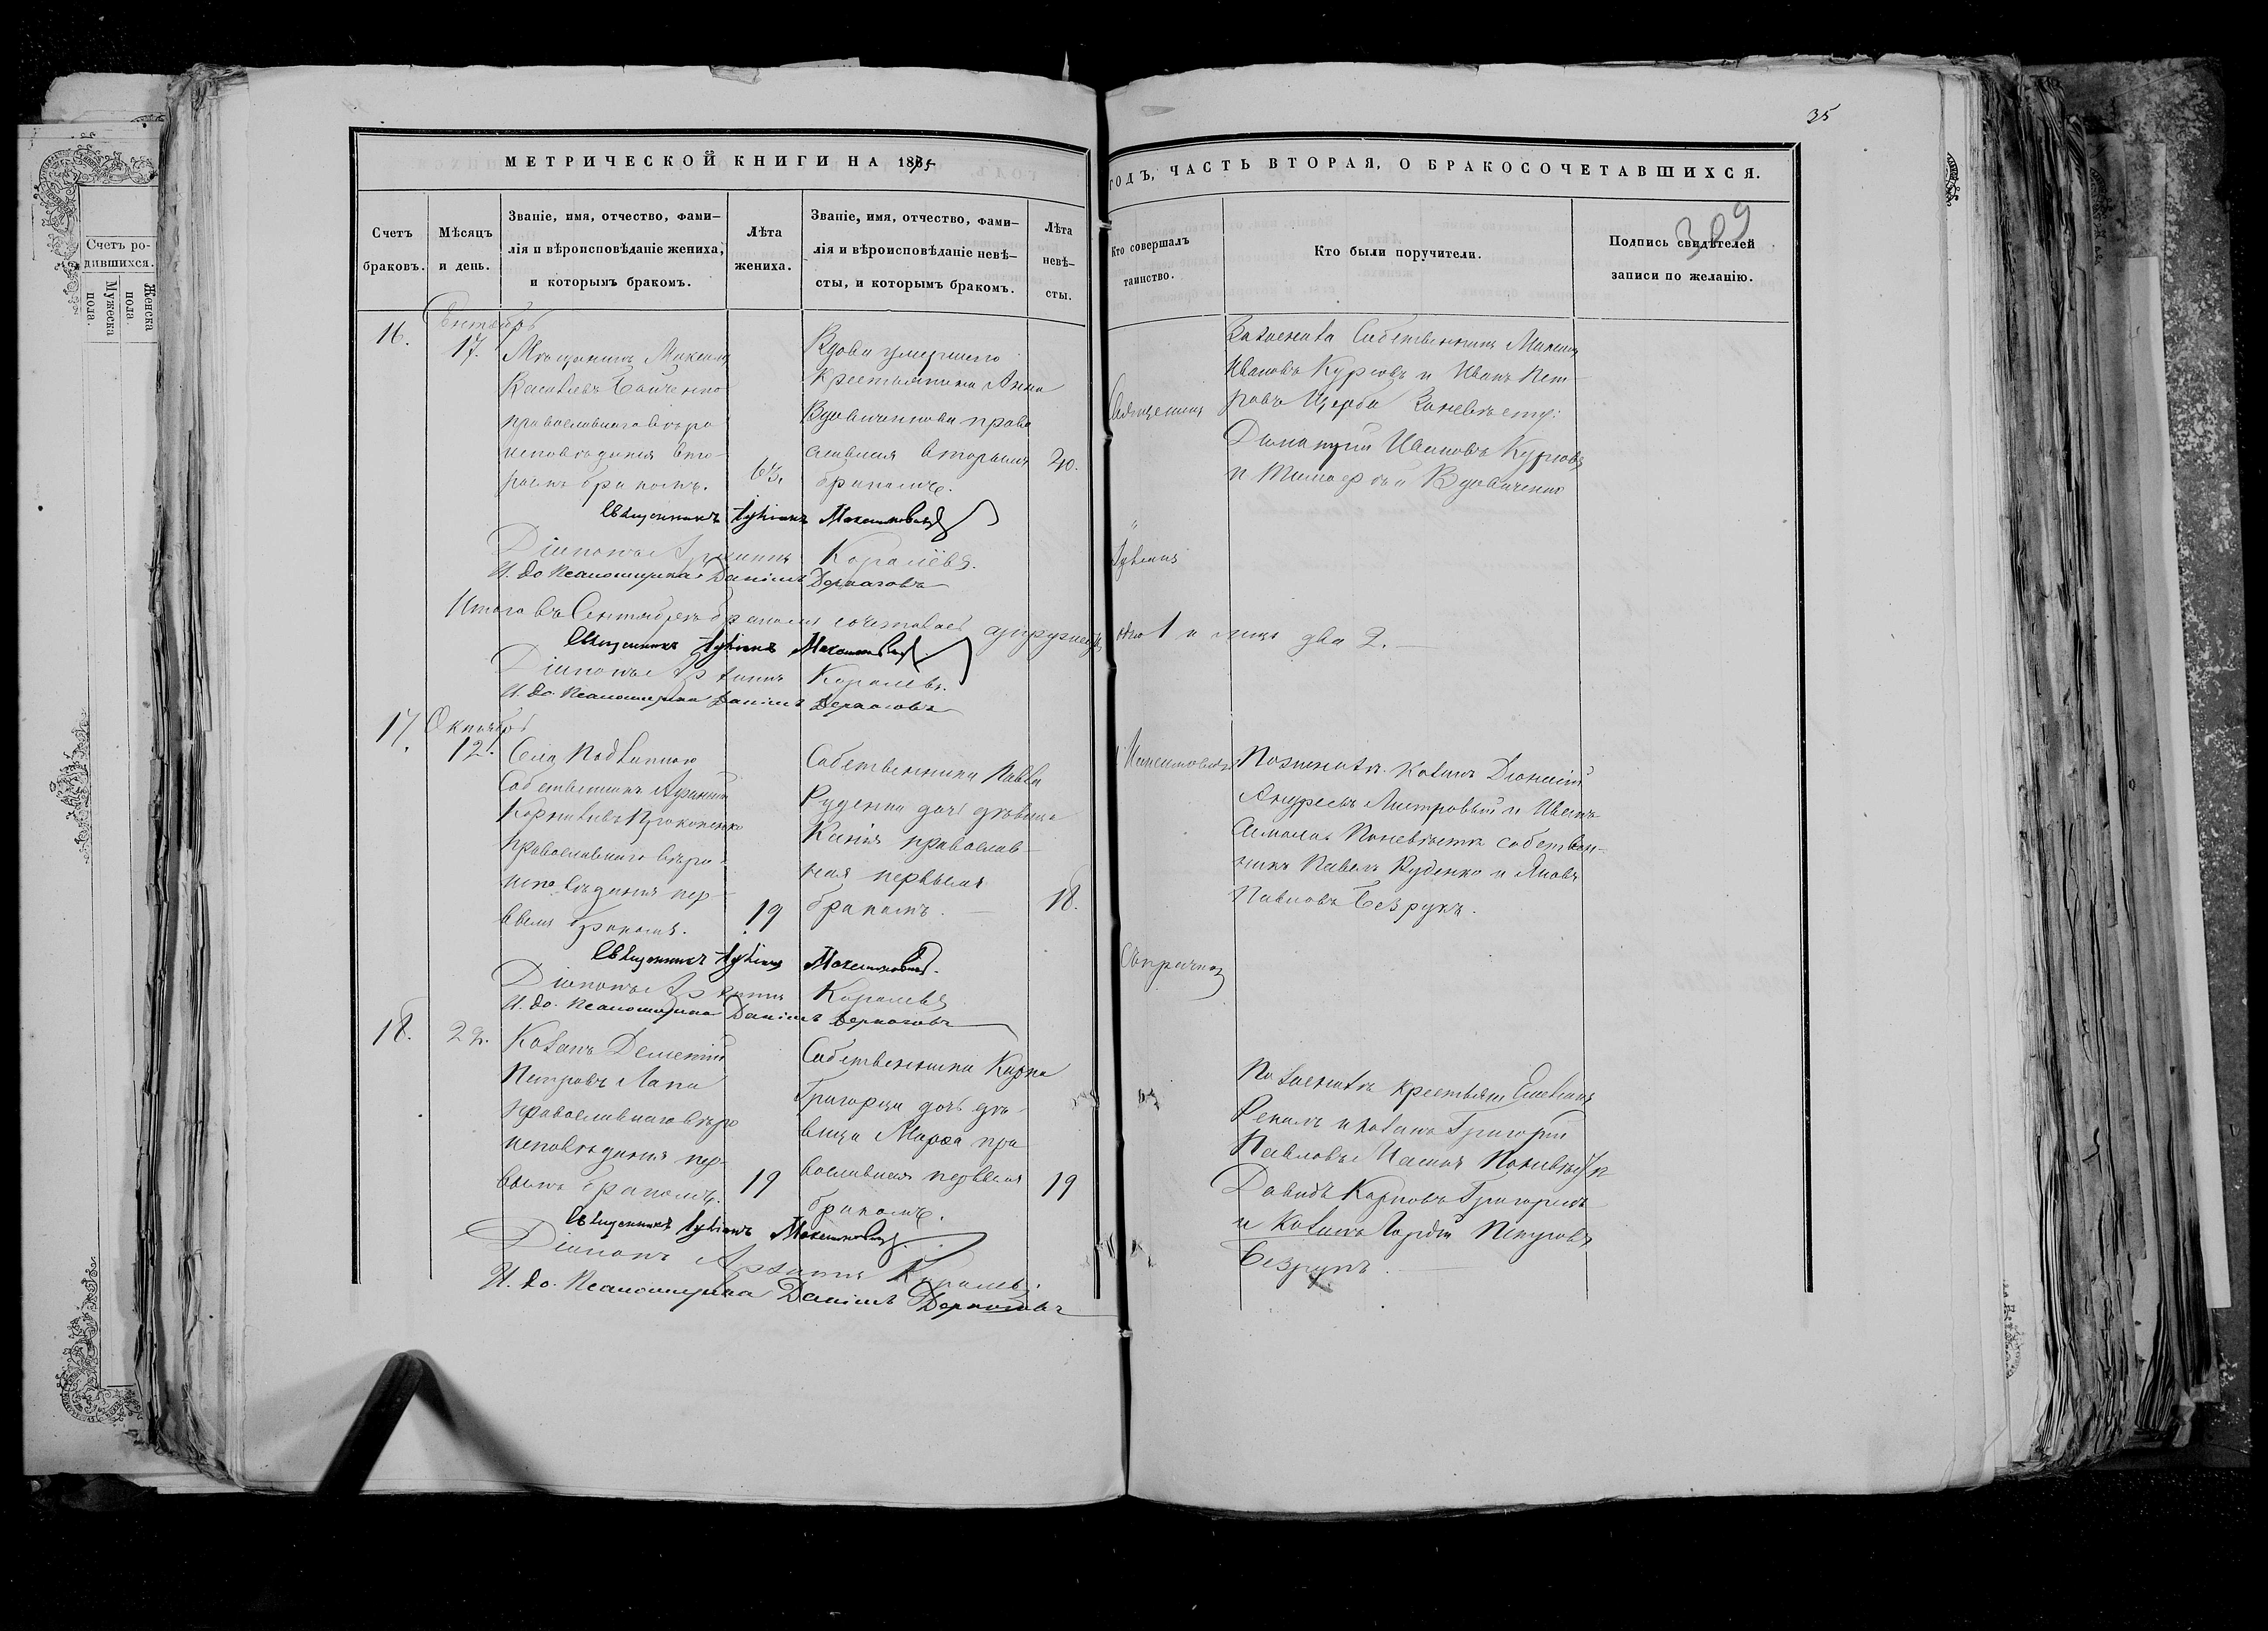 35
МЕТРИЧЕСКОЙ КНИГИ НА 1875
ГОДЪ, ЧАСТЬ ВТОРАЯ, О БРАКОСОЧЕТАВШИХСЯ.
309
Счетъ ро-
дившихся.
Мужеска
пола.
Женска
пола.
Счетъ
браковъ.
Мѣсяцъ
и день.
Званіе, имя, отчество, фами-
лія и вѣроисповѣданіе жениха,
и которымъ бракомъ.
Лѣта
жениха.
Званіе, имя, отчество, фами-
лія и вѣроисповѣданіе невѣ-
сты, и которымъ бракомъ.
Лѣта
невѣ-
сты.
Кто совершалъ
таинство.
Кто были поручители.
Подпись свидѣтелей
записи по желанію.
16.
Сентябрь
17.
Мѣщанинъ Максимъ
Васильевъ
православнаго вѣро
исповѣданія вто-
рымъ бракомъ.
Вдова умершаго
крестьянина Анна
Вдовиченкова право
славная вторымъ
бракомъ.
40.
Священникъ
собственникъ Максимъ
Ивановъ Курловъ и Иванъ Пет-
ровъ Щерба
Ивановъ Курловъ
и Тимофей Вдовиченко
Священникъ Лукіанъ Максимовичъ
Діаконъ Королёвъ.
И. до. Псаломщика Даніилъ Деркачовъ
Лукіанъ
Итого въ Сентябрѣ бракомъ сочеталось супружество одно 1 и лицъ два 2.
Священникъ Лукіанъ Максимовичъ
Діаконъ Королевъ.
И. до. Псаломщика Даніилъ Деркачовъ
17.
Октябрь
12.
Села
Собственникъ
Корнильевъ Прокопенко
православнаго вѣро-
исповѣданія пер-
вымъ бракомъ.
19
Собственника Павла
Руденка дочь дѣвица
православ-
ная первымъ
бракомъ.
18.
Максимовичъ
По женихѣ козакъ Діонисій
Андреевъ и Иванъ
по невѣстѣ собствен-
никъ Павелъ Руденко и Яковъ
Павловъ Безрукъ.
Священникъ Лукіанъ Максимовичъ.
Діаконъ Королевъ
И. до. Псаломщика Даніилъ Деркачовъ
18.
22.
Козакъ Дементій
Петровъ Лапа
православнаго вѣро
исповѣданія пер-
вымъ бракомъ.
19
Собственника Карпа
Григорца дочь дѣ-
вица Марѳа пра
вославная первымъ
бракомъ.
19
По женихѣ крестьян. Емеліанъ
и козакъ Григорій
Павловъ по невѣстѣ
Давидъ Карповъ Григорецъ
и козакъ Гордій Петровъ
Безрукъ.
Священникъ Лукіанъ Максимовичъ.
Діаконъ Королевъ.
И. до. Псаломщика Даніилъ Деркачовъ